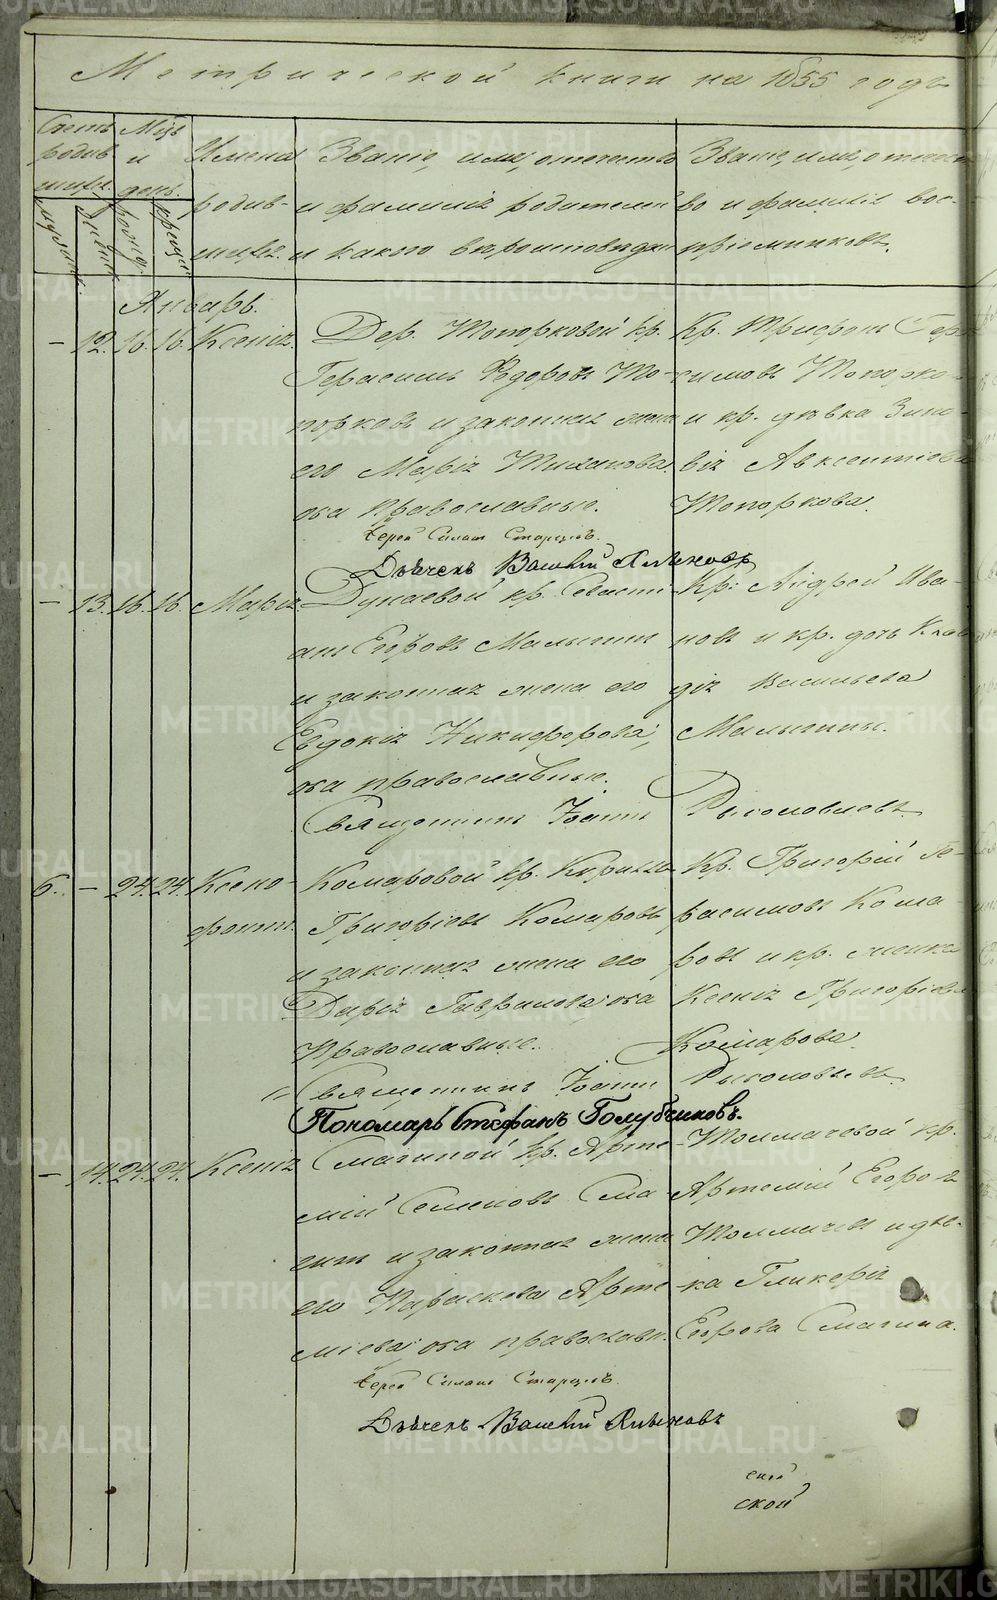 Метрической книги на 1855 годъ
Счетъ родив- шихс.
Мѣц. и день.
мужеск.
женск.
рожд.
крещен.
Имена родив- шихс.
Званіе, имя, отечество и фамилія родителей и какого вѣроисповѣдан.
Званіе, имя, отчест- во и фамилія вос- пріемниковъ.
Январь.
– 12. 16. 16. Ксенія.
Дер. Топорковой кр.
Герасимъ Ѳедоровъ То-
порковъ и законная жена
его Марія Тиханова
оба православные.
Кр. Трифонъ Гера-
симовъ Топорко-
и кр. дѣвка Зино-
вія Авксентіева
Топоркова.
Іерей Силанъ Старцовъ.
Дьячекъ Василій Хлыновъ
– 13. 16. 16. Марія
Дунаевой кр. Севасті-
анъ Егоровъ Малыгинъ
и законная жена его
Евдокія Никифорова,
оба православные.
Кр: Андрей Ива-
новъ и кр. дочь Клав
дія Васильева
Малыгины.
Священникъ Іоаннъ Рыболовлевъ
6. – 24. 24. Ксено-
фонтъ.
Комаровой кр. Кириллъ
Григорьевъ Комаровъ
и законная жена его
Дарія Гаврилова оба
Православные.
Кр. Григорій Ге-
расимовъ Кома-
ровъ и кр. женка
Ксенія Григорьева
Комарова.
Священникъ Іоаннъ Рыболовлевъ
Пономарь Стефанъ Голубчиковъ.
– 14. 24. 24. Ксенія
Смагиной кр. Арте-
мій Семеновъ Сма-
гинъ и законная жена
его Параскева Арте-
міева оба православн.
Толмачевой кр.
Артемій Егоровъ
Толмачевъ и дѣв-
ка Гликерія
Егорова Смагина.
Іерей Силанъ Старцовъ.
Дьячекъ Василій Хлыновъ
ской
METRIKI.GASO-URAL.RU